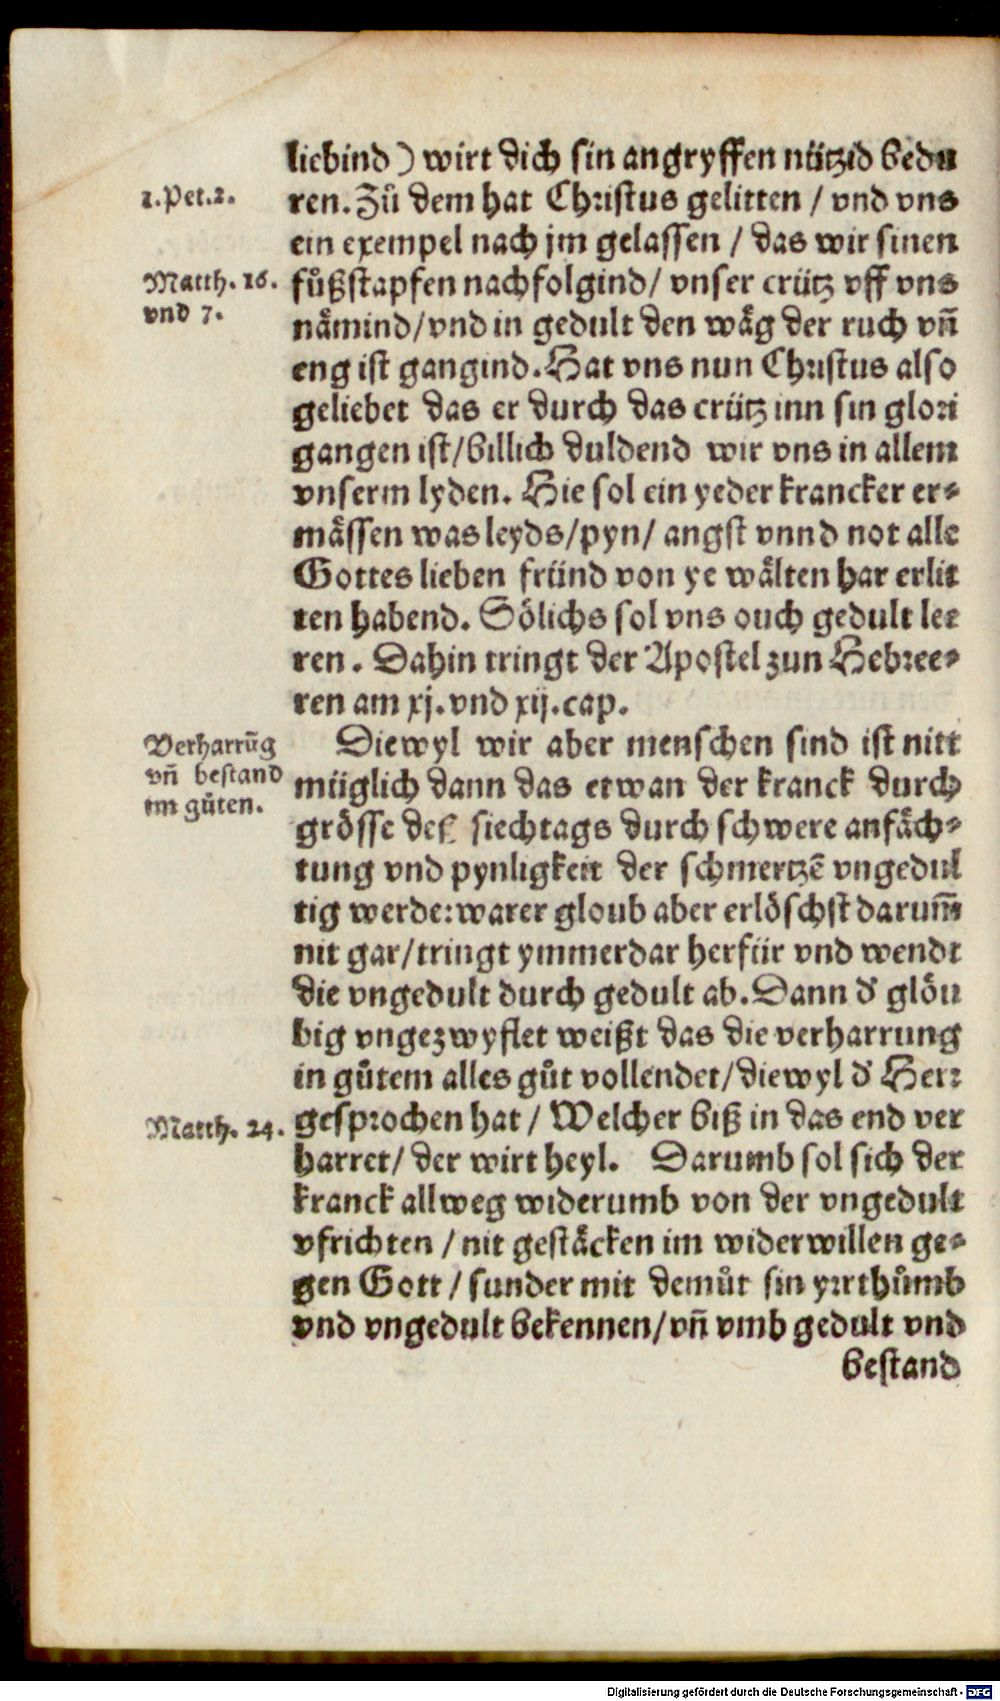 liebind) wirt dich sin angryffen nützid bedu
1.Pet.2.
ren. Zů dem hat Christus gelitten / vnd vns
ein exempel nach jm gelassen / das wir sinen
Matth. 16.
vnd 7.
fůßstapfen nachfolgind/ vnser crütz vff vns
nämind/vnd in gedult den wäg der ruch vñ
eng ist gangind. Hat vns nun Christus also
geliebet das er durch das crütz inn sin glori
gangen ist/billich duldend wir vns in allem
vnserm lyden. Hie sol ein yeder krancker er⸗
mässen was leyds/pyn/ angst vnnd not alle
Gottes lieben fründ von ye wälten har erlit
ten habend. Sölichs sol vns ouch gedult lee
ren. Dahin tringt der Apostel zun Hebree⸗
ren am xj. vnd xij. cap.
Verharrũg
vñ bestand
im gůten.
Diewyl wir aber menschen sind ist nitt
müglich dann das etwan der kranck durch
grösse deß siechtags durch schwere anfäch⸗
tung vnd pynligkeit der schmertzẽ vngedul
tig werde: warer gloub aber erlöschst darum̃
nit gar/tringt ymmerdar herfür vnd wendt
die vngedult durch gedult ab. Dann d' glöu
big vngezwyflet weißt das die verharrung
in gůtem alles gůt vollendet/diewyl d' Herr
Matth. 24.
gesprochen hat / Welcher biß in das end ver
harret/ der wirt heyl. Darumb sol sich der
kranck allweg widerumb von der vngedult
vfrichten / nit gestäcken im widerwillen ge⸗
gen Gott / sunder mit demůt sin yrrthůmb
vnd vngedult bekennen/vñ vmb gedult vnd
bestand
Digitalisierung gefördert durch die Deutsche Forschungsgemeinschaft - DFG